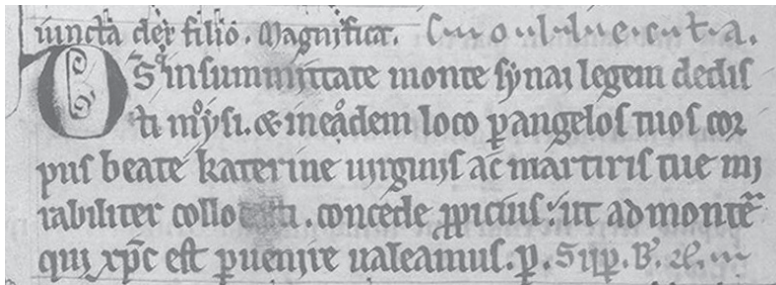 iuncta dei filio. Magnificat. Conubiuentia.
D̄s q̇ in summittate monte sẏnai legem dedis
ti moẏsi. & in eadem loco ꝑ angelos tuos cor
pus beate katerine uirginis ac martiris tue mi
rabiliter collocasti. concede ꝓpicius. ut ad montē
qui xp̄c est ꝑuenire ualeamus. ꝑ.